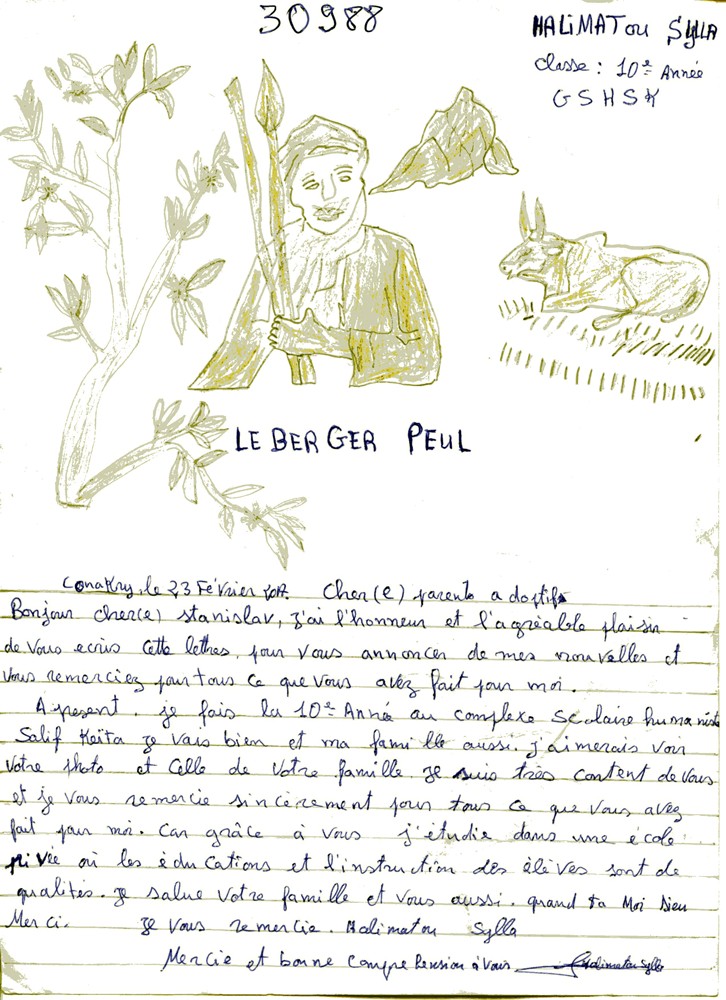 30988
HALiMATou SYllA
classe : 10e Année
G S H S K
LE BERGER PEUL
Conakry, le 23 Février 2017. Cher(e) parents adoptifs
Bonjour cher(e) stanislav, j'ai l'honneur et l'agréable plaisir
de vous ecris cette lettres, pour vous annoncer de mes nouvelles et
vous remerciez pour tous ce que vous avez fait pour moi.
A present, je fais la 10e Année au complexe scolaire humaniste
Salif Keita je vais bien et ma famille aussi. j'aimerais voir
votre photo et celle de votre famille. je suis très content de vous
et je vous remercie sincèrement pour tous ce que vous avez
fait pour moi. Car grâce à vous j'étudie dans une école
privée où les éducations et l'instruction des élèves sont de
qualités. je salue votre famille et vous aussi. quand ta Moi Dieu
Merci. je vous remercie. Halimatou Sylla
Mercie et bonne compreHension à vous Halimatou Sylla